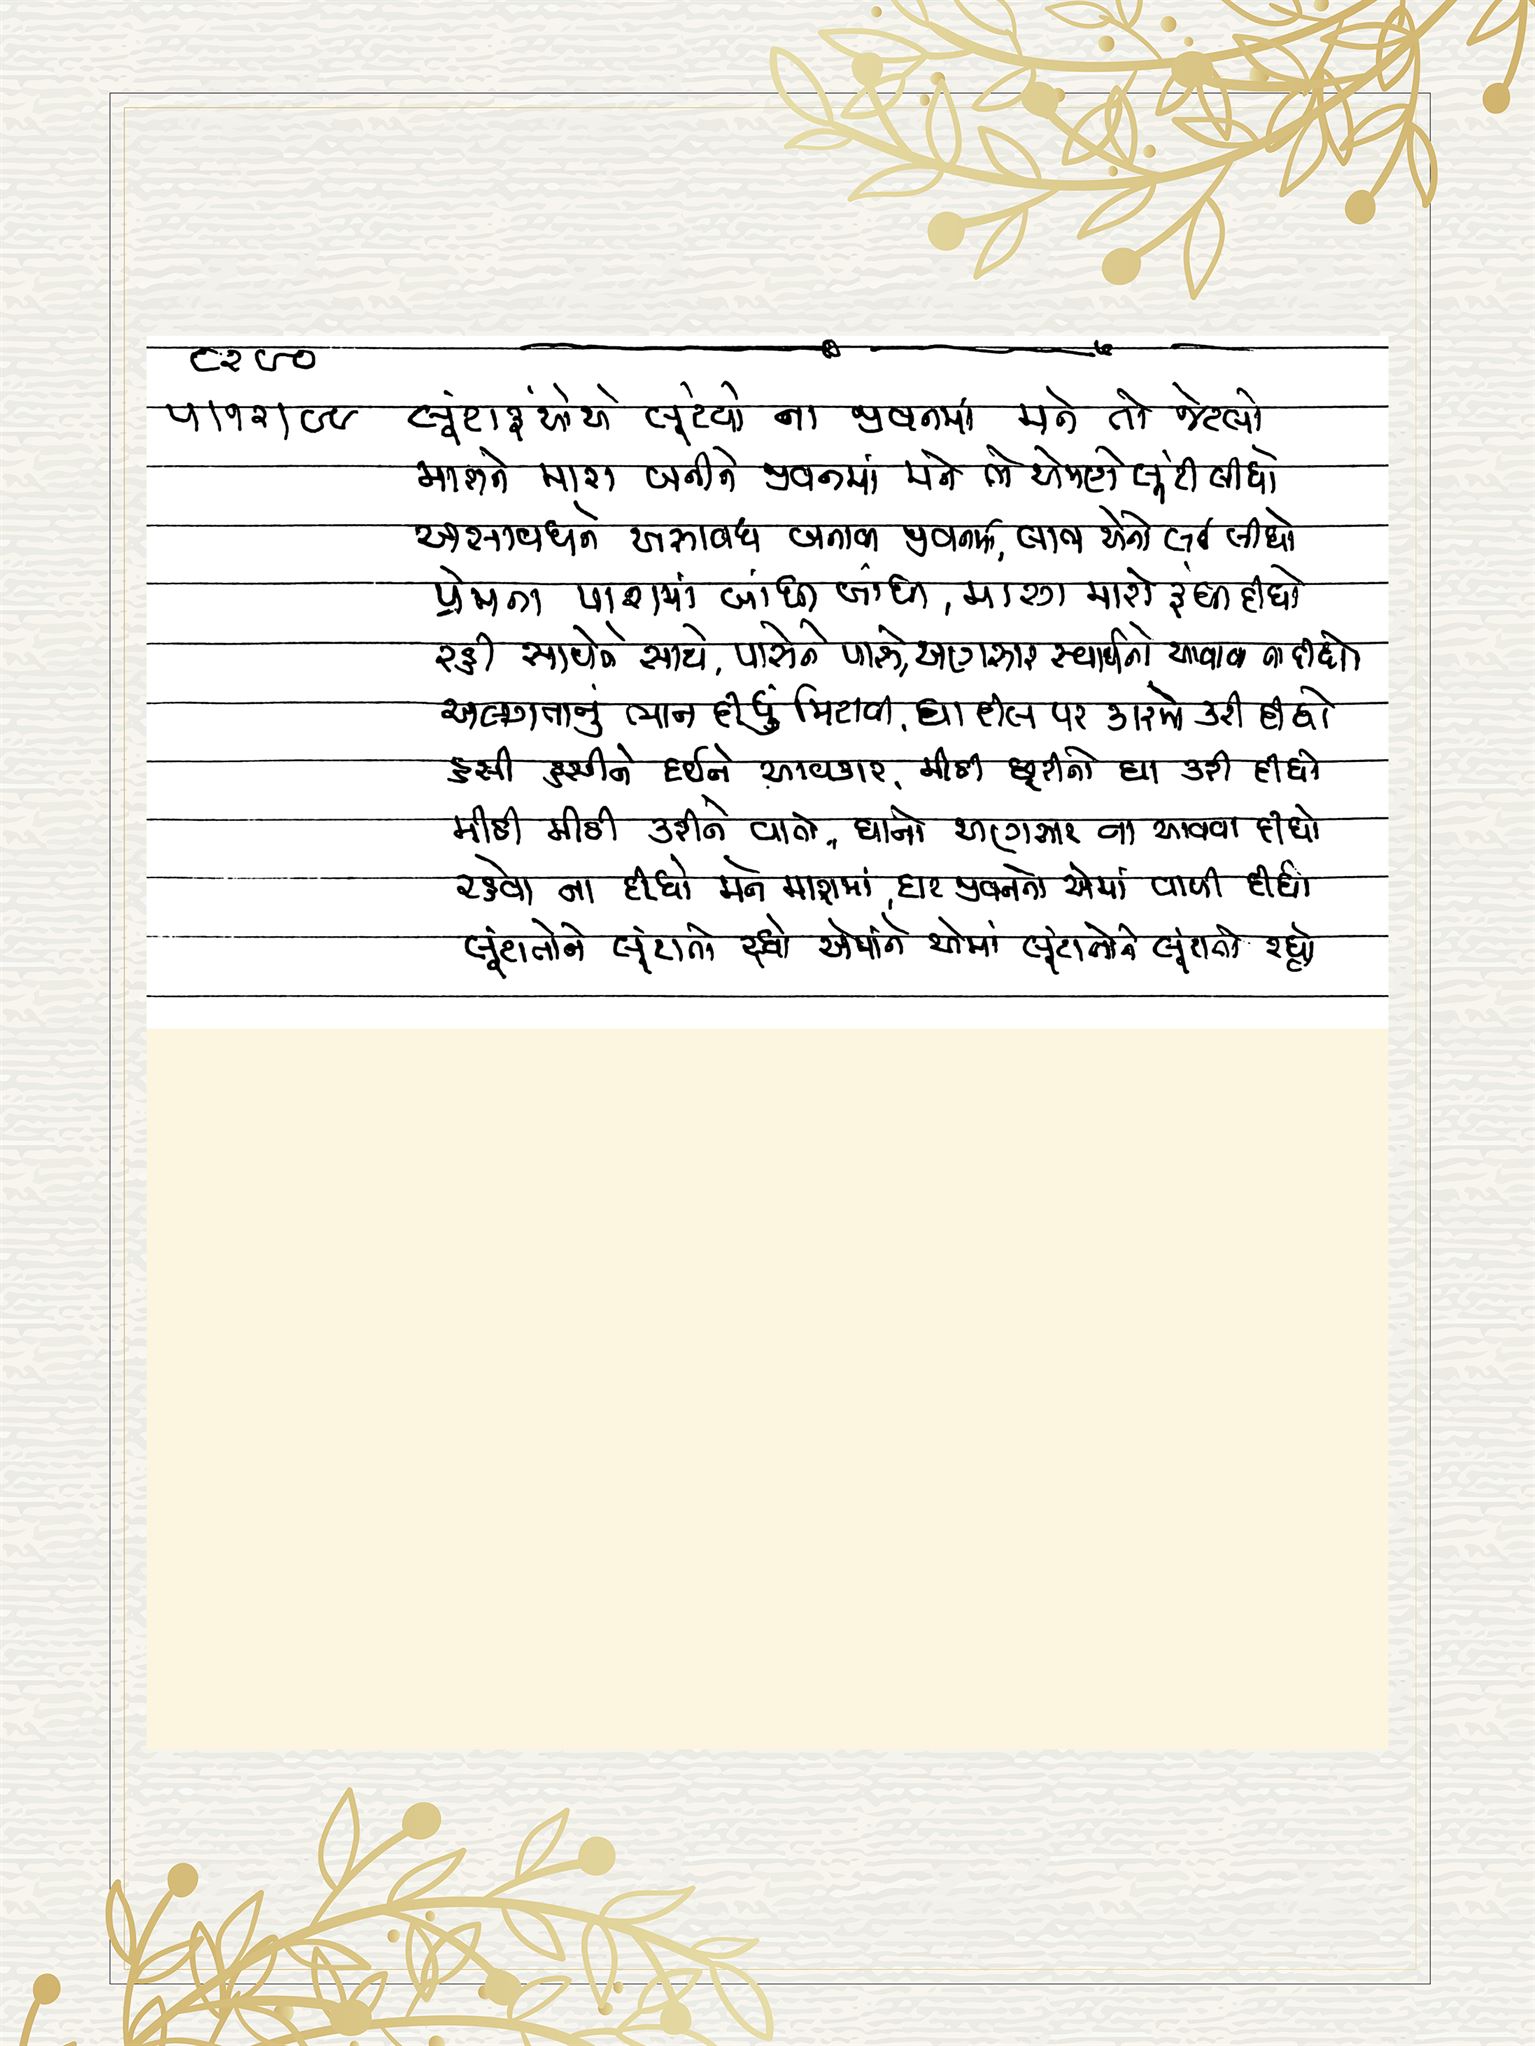 ૮૨૪૦
૫/૧૨/૯૯ લૂંટારૂંઓએ લૂંટયો ના જીવનમાં મને તો જેટલો
મારાને મારા બનીને જીવનમાં મને તો એમણે લૂંટી લીધો
અસાવધને અસાવધ બનાવી જીવનમાં, લાભ એનો લઈ લીધો
પ્રેમના પાશમાં બાંધી બાંધી, મારગ મારો રૂંધી દીધો
રહી સાથેને સાથે, પાસેને પાસે, અણસાર સ્વાર્થનો આવવા ના દીધો
અલગતાનું ભાન દીધું મિટાવી, ઘા દીલ પર કારમો કરી દીધો
હસી હસીને દઈને આવકાર, મીઠી છૂરીનો ઘા કરી દીધો
મીઠી મીઠી કરીને વાતો, ઘાનો અણસાર ના આવવા દીધો
રહેવા ના દીધો મને મારામાં, દાટ જીવનનો એમાં વાળી દીધો
લૂંટાતોને લૂંટાતો રહ્યો એમાંને એમાં લૂંટાતોને લૂંટાતો રહ્યો